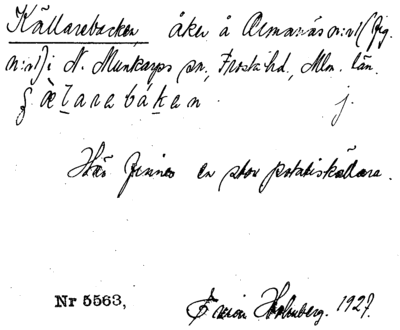 Källarebacken åker å Almanäs n:o1 (fig.
n:o1) i N. Munkarps sn, Frosta hd, Mlm. län.
j.
Här finnes en stor potatiskällare.
Nr 5563, Holmberg. 1927.